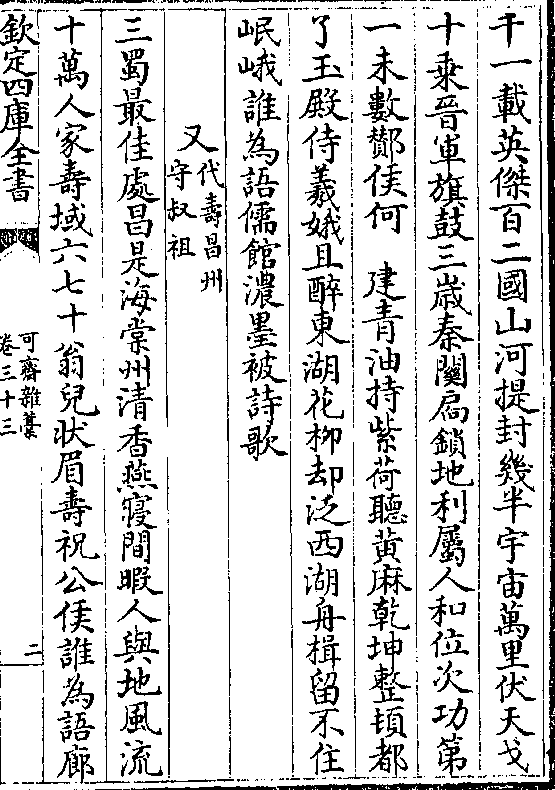 千一載英傑百二國山河提封幾半宇宙萬里伏天戈
十乘晉軍旗鼓三歲秦關扃鎖地利屬人和位次功第
一未數酇侯何　建青油持紫荷聽黄麻乾坤整頓都
了玉殿侍羲娥且醉東湖花柳却泛西湖舟楫留不住
岷峨誰為語儒館濃墨被詩歌
又代壽昌州守叔祖
三蜀最佳處昌是海棠州清香燕寢閒暇人與地風流
十萬人家壽域六七十翁兒狀眉壽祝公侯誰為語廊
欽定四庫全書
可齋雜藁
卷三十三
二